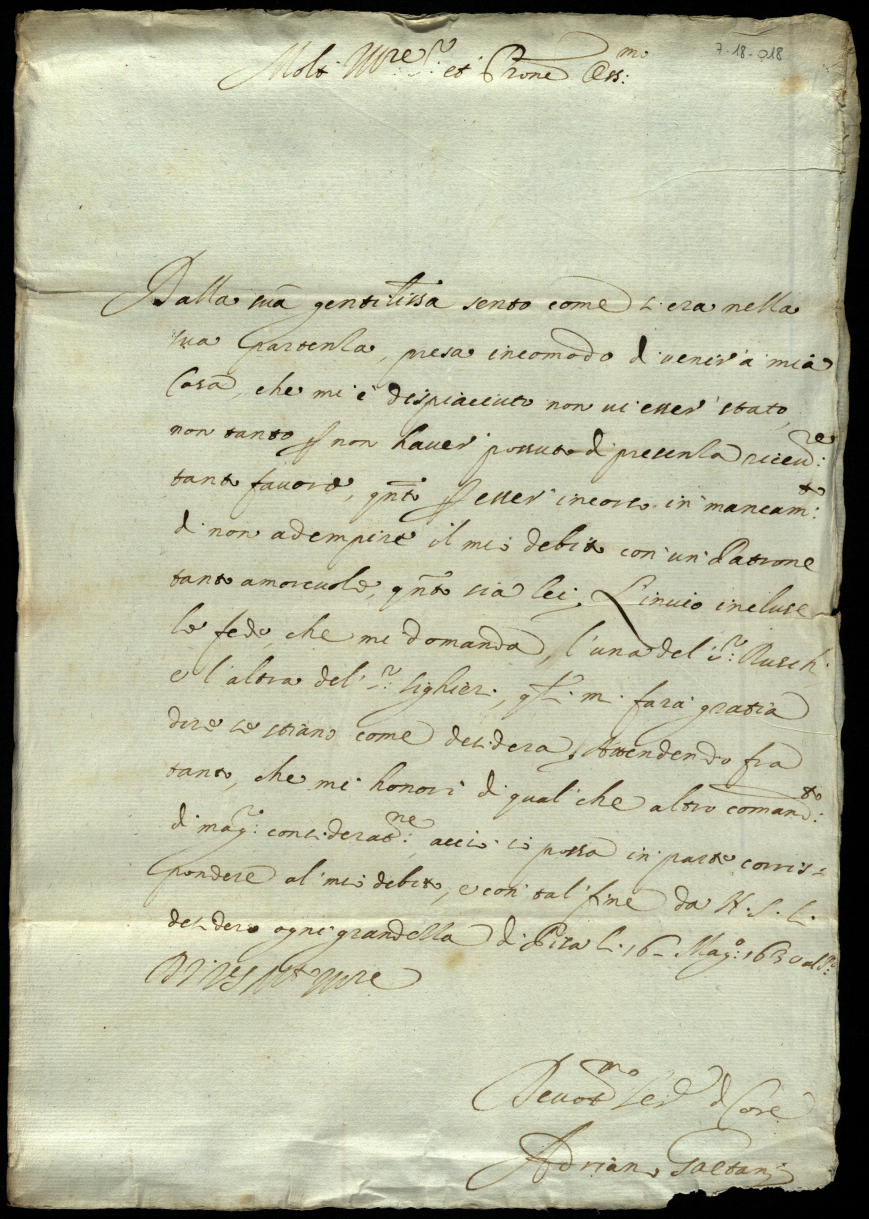 7-18-018
Molt Ill.re S.r et Prone Oss.mo
Dalla sua gentiliss.a sento come s'era nella
sua partenza, presa incomodo di venir' a mia
Casa, che mi è dispiacciuto non vi esser' stato,
non tanto p non haver' possuto di presenza riceu.re
tanto favore, qnto p esser' incorso in mancam.to
di non adempire il mio debito con un' Patrone
tanto amorevole, qnto sia lei, L'invio incluse
le fede, che mi domanda, l'una del' S.r Rusch.
e l'altra del' S.r Sighieri, mi farà gratia
dire se stiano come desidera, Attendendo fra
tanto, che mi honori di qual' che altro comand.to
di mag.r considerat.ne, acciò io possa in parte corris-
pondere al' mio debito, e con' tal' fine da N. S. L.
desidero ogni grandezza di Pisa li 16 Mag.o 1630
Di V S Mt Ill.re
Devot.mo Ser.r di Core
Adriano Gaetani